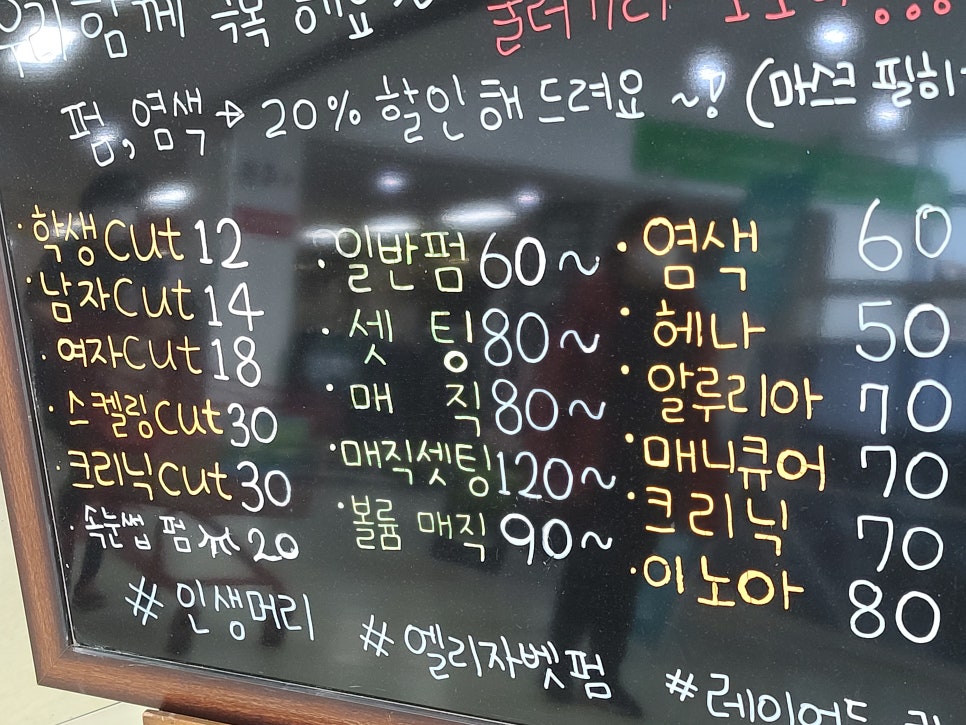 우리 함께 극복 해요
펌, 염색 → 20% 할인 해 드려요 ~! (마스크 필히
·학생cut 12
·남자cut 14
·여자cut 18
·스켈링cut 30
·크리닉cut 30
·속눈썹 펌 20
·일반펌 60~
·셋 팅 80~
·매 직 80~
·매직셋팅 120~
·볼륨 매직 90~
·염색 60
·헤나 50
·알루리아 70
·매니큐어 70
·크리닉 70
·이노아 80
#인생머리
#엘리자벳펌
#레이어드